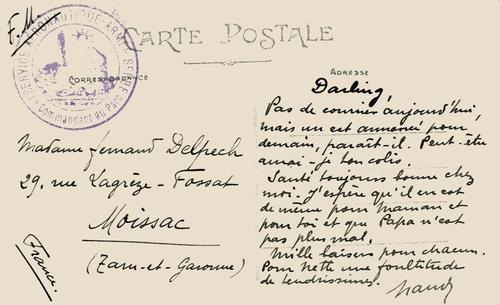 F.M.
SERVICE AÉRONAUTIQUE
Commandant du Parc
CARTE POSTALE
CORRESPONDANCE
ADRESSE
Madame Fernand Delpech
29, rue Lagrèze-Fossat
Moissac
(Tarn-et-Garonne)
France.
Darling,
Pas de courrier aujourd'hui,
mais un est annoncé pour
demain, paraît-il. Peut-être
aurai-je ton colis.
Santé toujours bonne chez
moi. J'espère qu'il en est
de même pour Maman et
pour toi et que Papa n'est
pas plus mal.
Mille baisers pour chacun.
Pour Nette une foultitude
de tendrissimes.